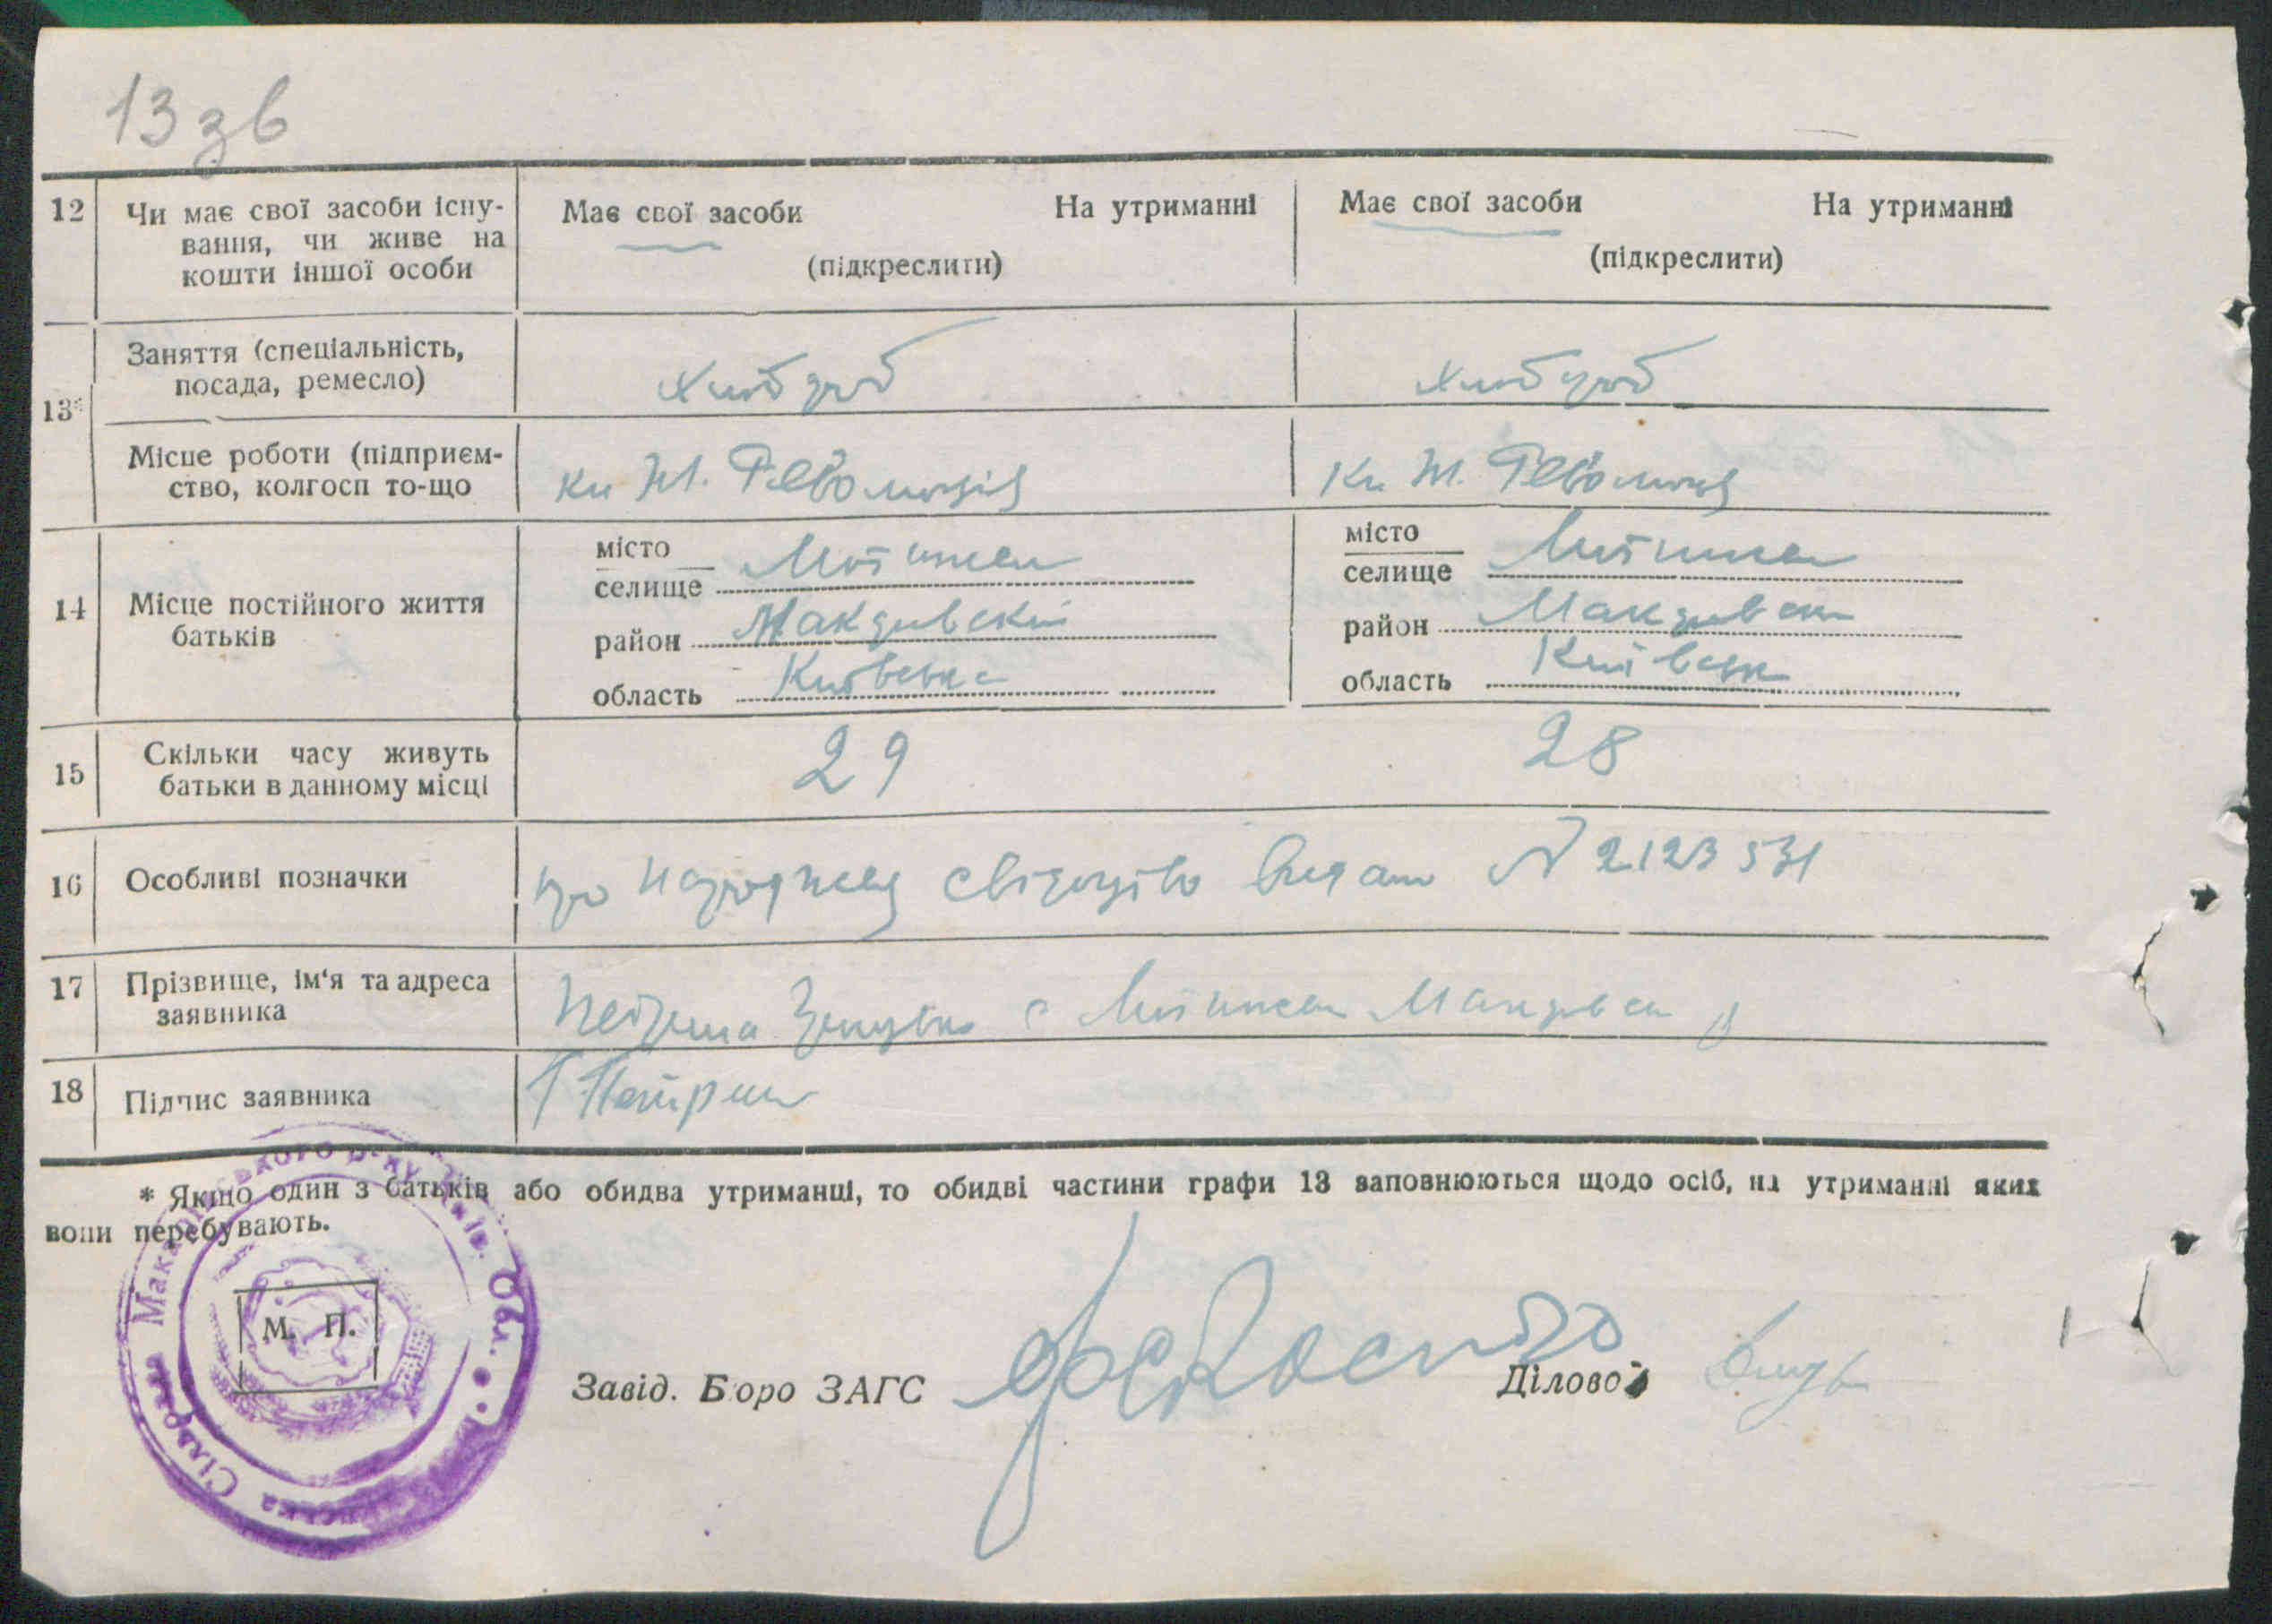 13 зв
12 Чи має свої засоби існу-
вання, чи живе на
кошти іншої особи
Має свої засоби На утриманні
(підкреслити)
Має свої засоби На утриманні
(підкреслити)
13*
Заняття (спеціальність,
посада, ремесло)
Хлібороб
Хлібороб
Місце роботи (підприєм-
ство, колгосп то-що
Революція
Революція
14 Місце постійного життя
батьків
місто
селище Мотижин
район Макарівський
область Київська
місто
селище Мотижин
район Макарівськ
область Київськ
15 Скільки часу живуть
батьки в данному місці
29
28
16 Особливі позначки
про народження свідоцтво видано № 2123531
17 Прізвище, ім'я та адреса
заявника
с Мотижин Макарівськ р
18 Підпис заявника
* Якщо один з батьків або обидва утриманці, то обидві частини графи 13 заповнюються щодо осіб, на утриманні яких
вони перебувають.
М. П.
Завід. Бюро ЗАГС
Діловод